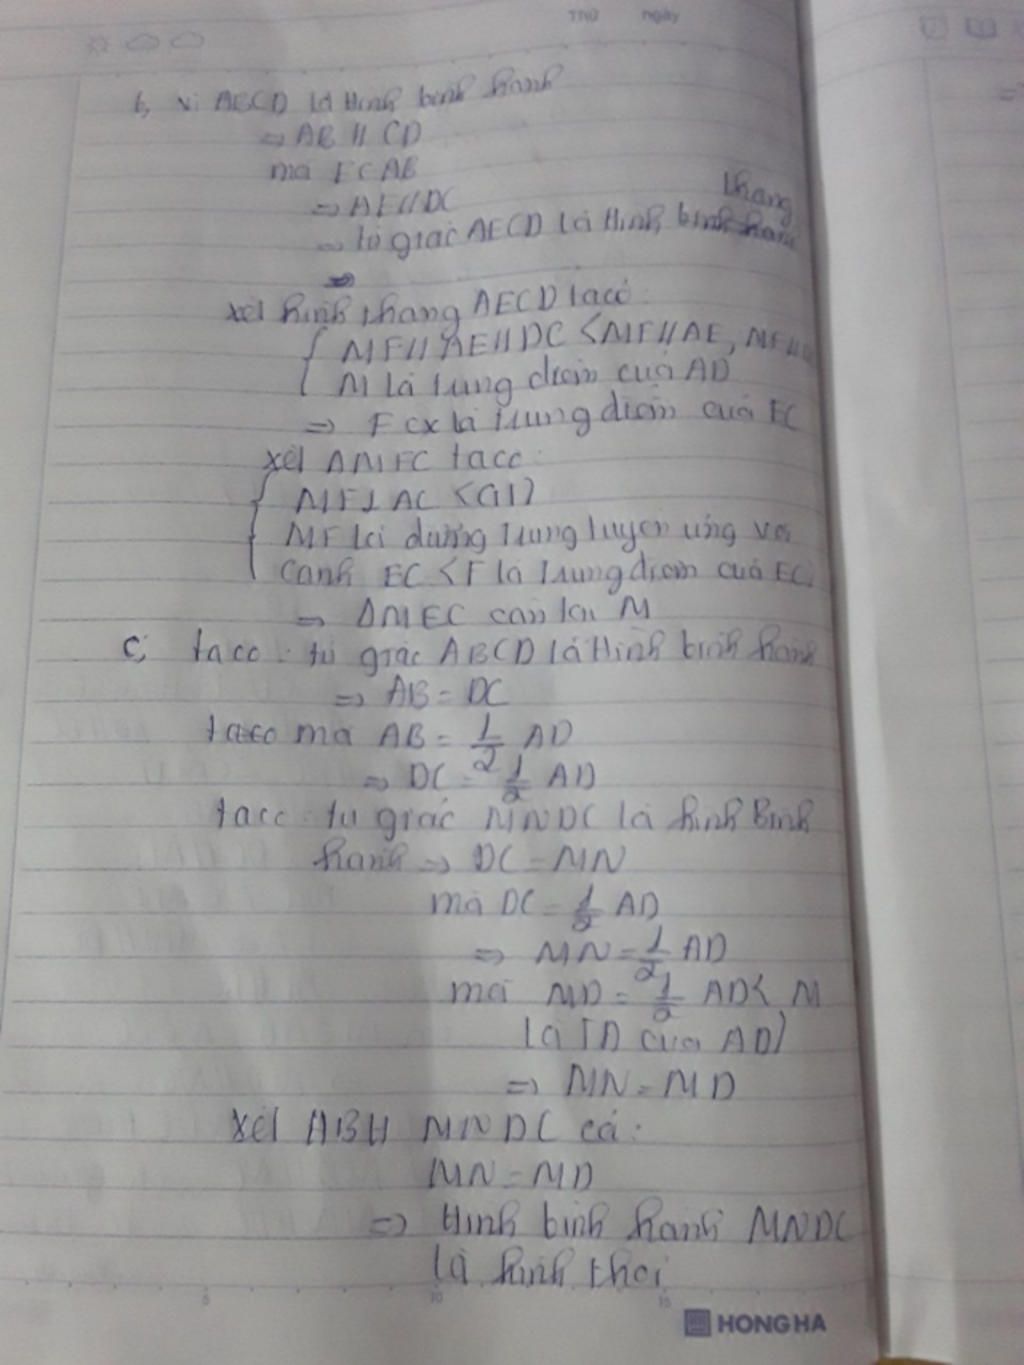 Thứ ngày
b, vì ABCD là Hình bình hành
=> AB // CD
mà E ∈ AB
=> AE // DC
thang
=> tứ giác AECD là Hình bình hành
=>
xét hình thang AECD ta có:
{ MF // AE // DC < MF // AE, MF //
M là trung điểm của AD
=> F là trung điểm của EC
xét ΔMEC ta có:
{ MF ⊥ AC < Gt)
MF là đường trung tuyến ứng với
cạnh EC < F là trung điểm của EC)
=> ΔMEC cân tại M
c, ta có: tứ giác ABCD là Hình bình hành
=> AB = DC
ta có mà AB = 1/2 AD
=> DC = 1/2 AD
ta có: tứ giác MNDC là hình Bình
hành => DC = MN
mà DC = 1/2 AD
=> MN = 1/2 AD
mà MD = 1/2 AD < M
là TĐ của AD)
=> MN = MD
xét HBH MNDC có:
MN = MD
=> Hình bình hành MNDC
là hình thoi
5 10 15
HONG HA